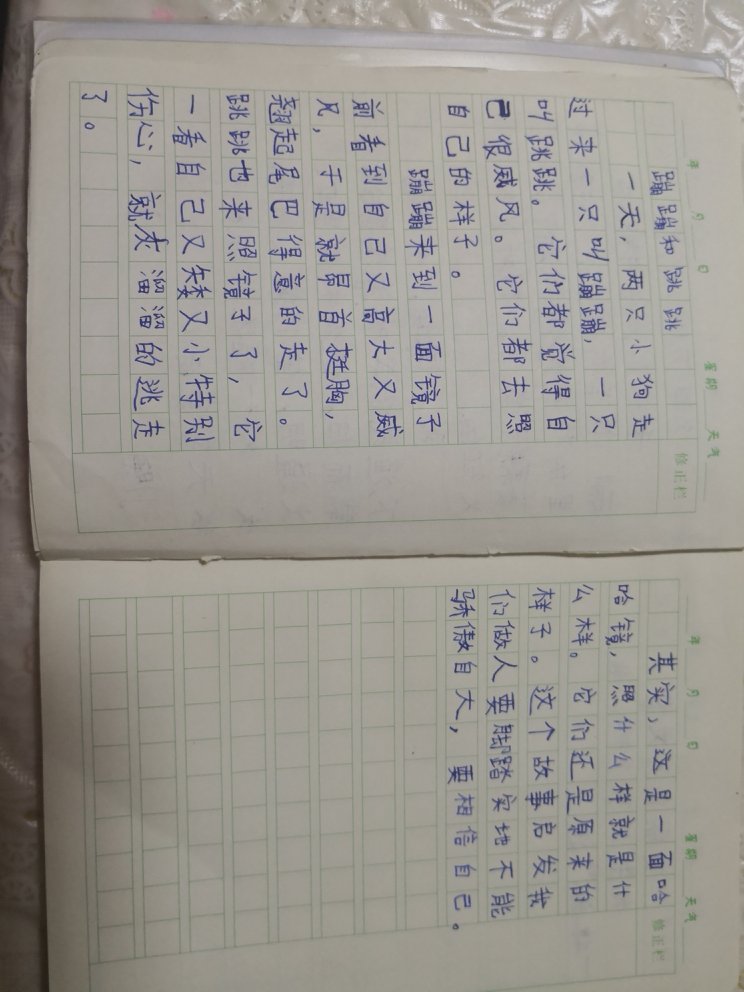 年 月 日 星期 天气
修正栏
蹦蹦和跳跳
一天，两只小狗走
过来一只叫蹦蹦，一只
叫跳跳。它们都觉得自
己很威风。它们都去照
自己的样子。
蹦蹦来到一面镜子
前看到自己又高大又威
风，于是就昂首挺胸，
翘起尾巴得意的走了。
跳跳也来照镜子了，它
一看自己又矮又小特别
伤心，就灰溜溜的逃走
了。
年 月 日 星期 天气
修正栏
其实，这是一面哈
哈镜，照什么样就是什
么样。它们还是原来的
样子。这个故事启发我
们做人要脚踏实地不能
骄傲自大，要相信自己。